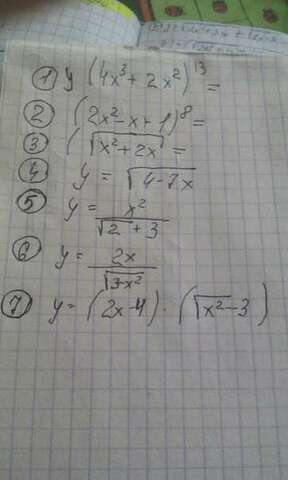 ① y (4x³ + 2x²)¹³ =
② (2x² - x + 1)⁸ =
③ (√(x² + 2x) =
④ y = √(4 - 7x)
⑤ y = x² / (√2 + 3)
⑥ y = 2x / √(3 - x²)
⑦ y = (2x - 4) · (√x² - 3)